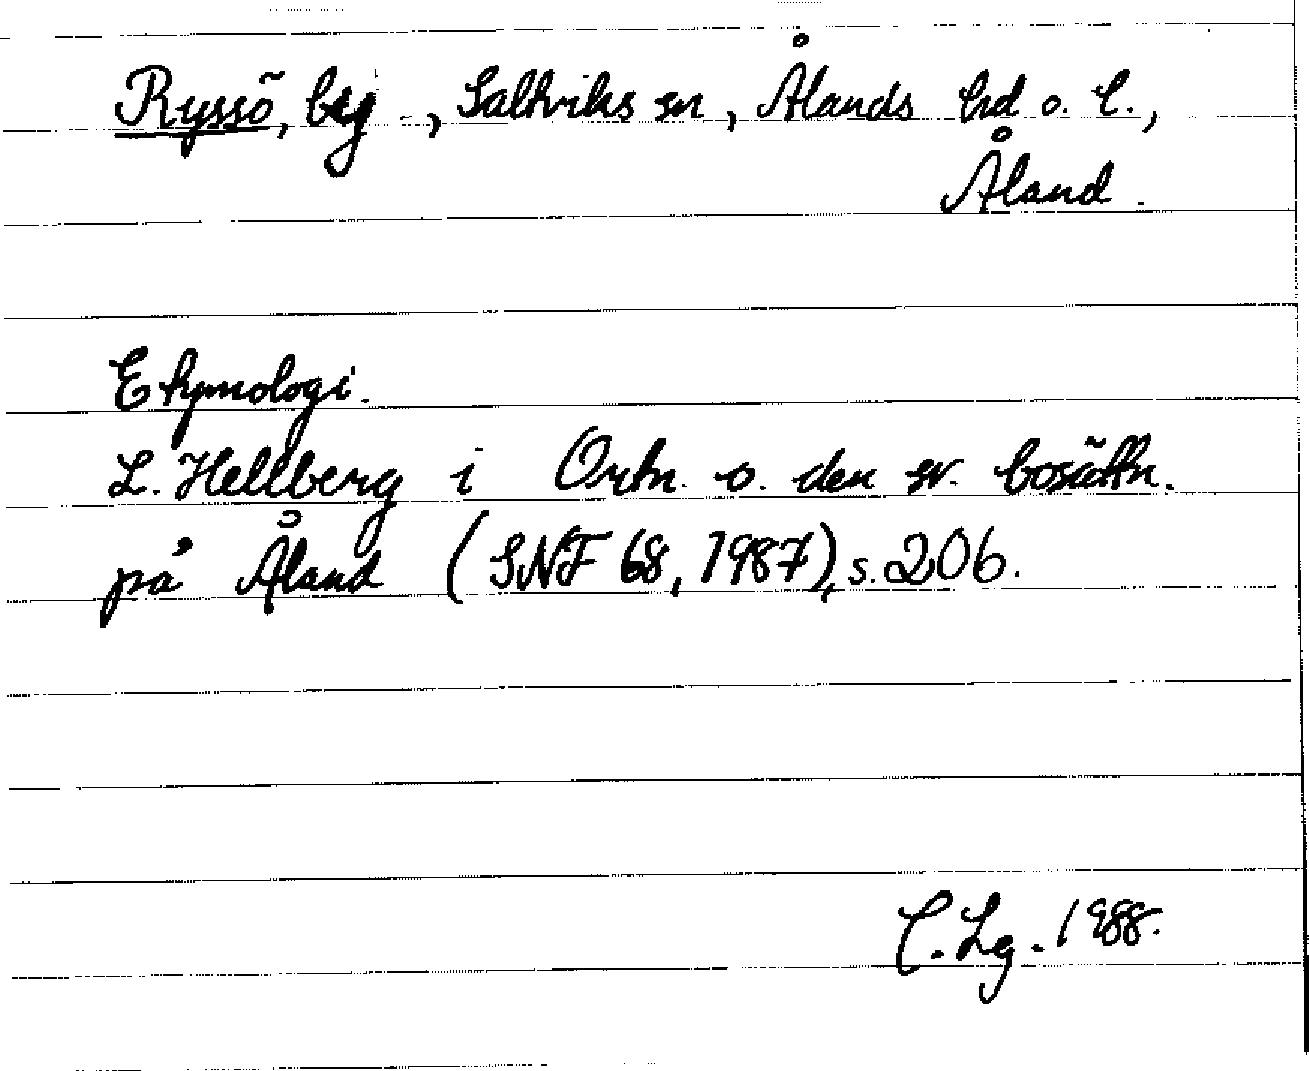 Ryssö, by, Saltviks sn, Ålands hd o. l.,
Åland.
Etymologi.
L. Hellberg i Ortn. o. den sv. bosättn.
på Åland (SNF 68, 1987), s. 206.
C. Lg. 1988.